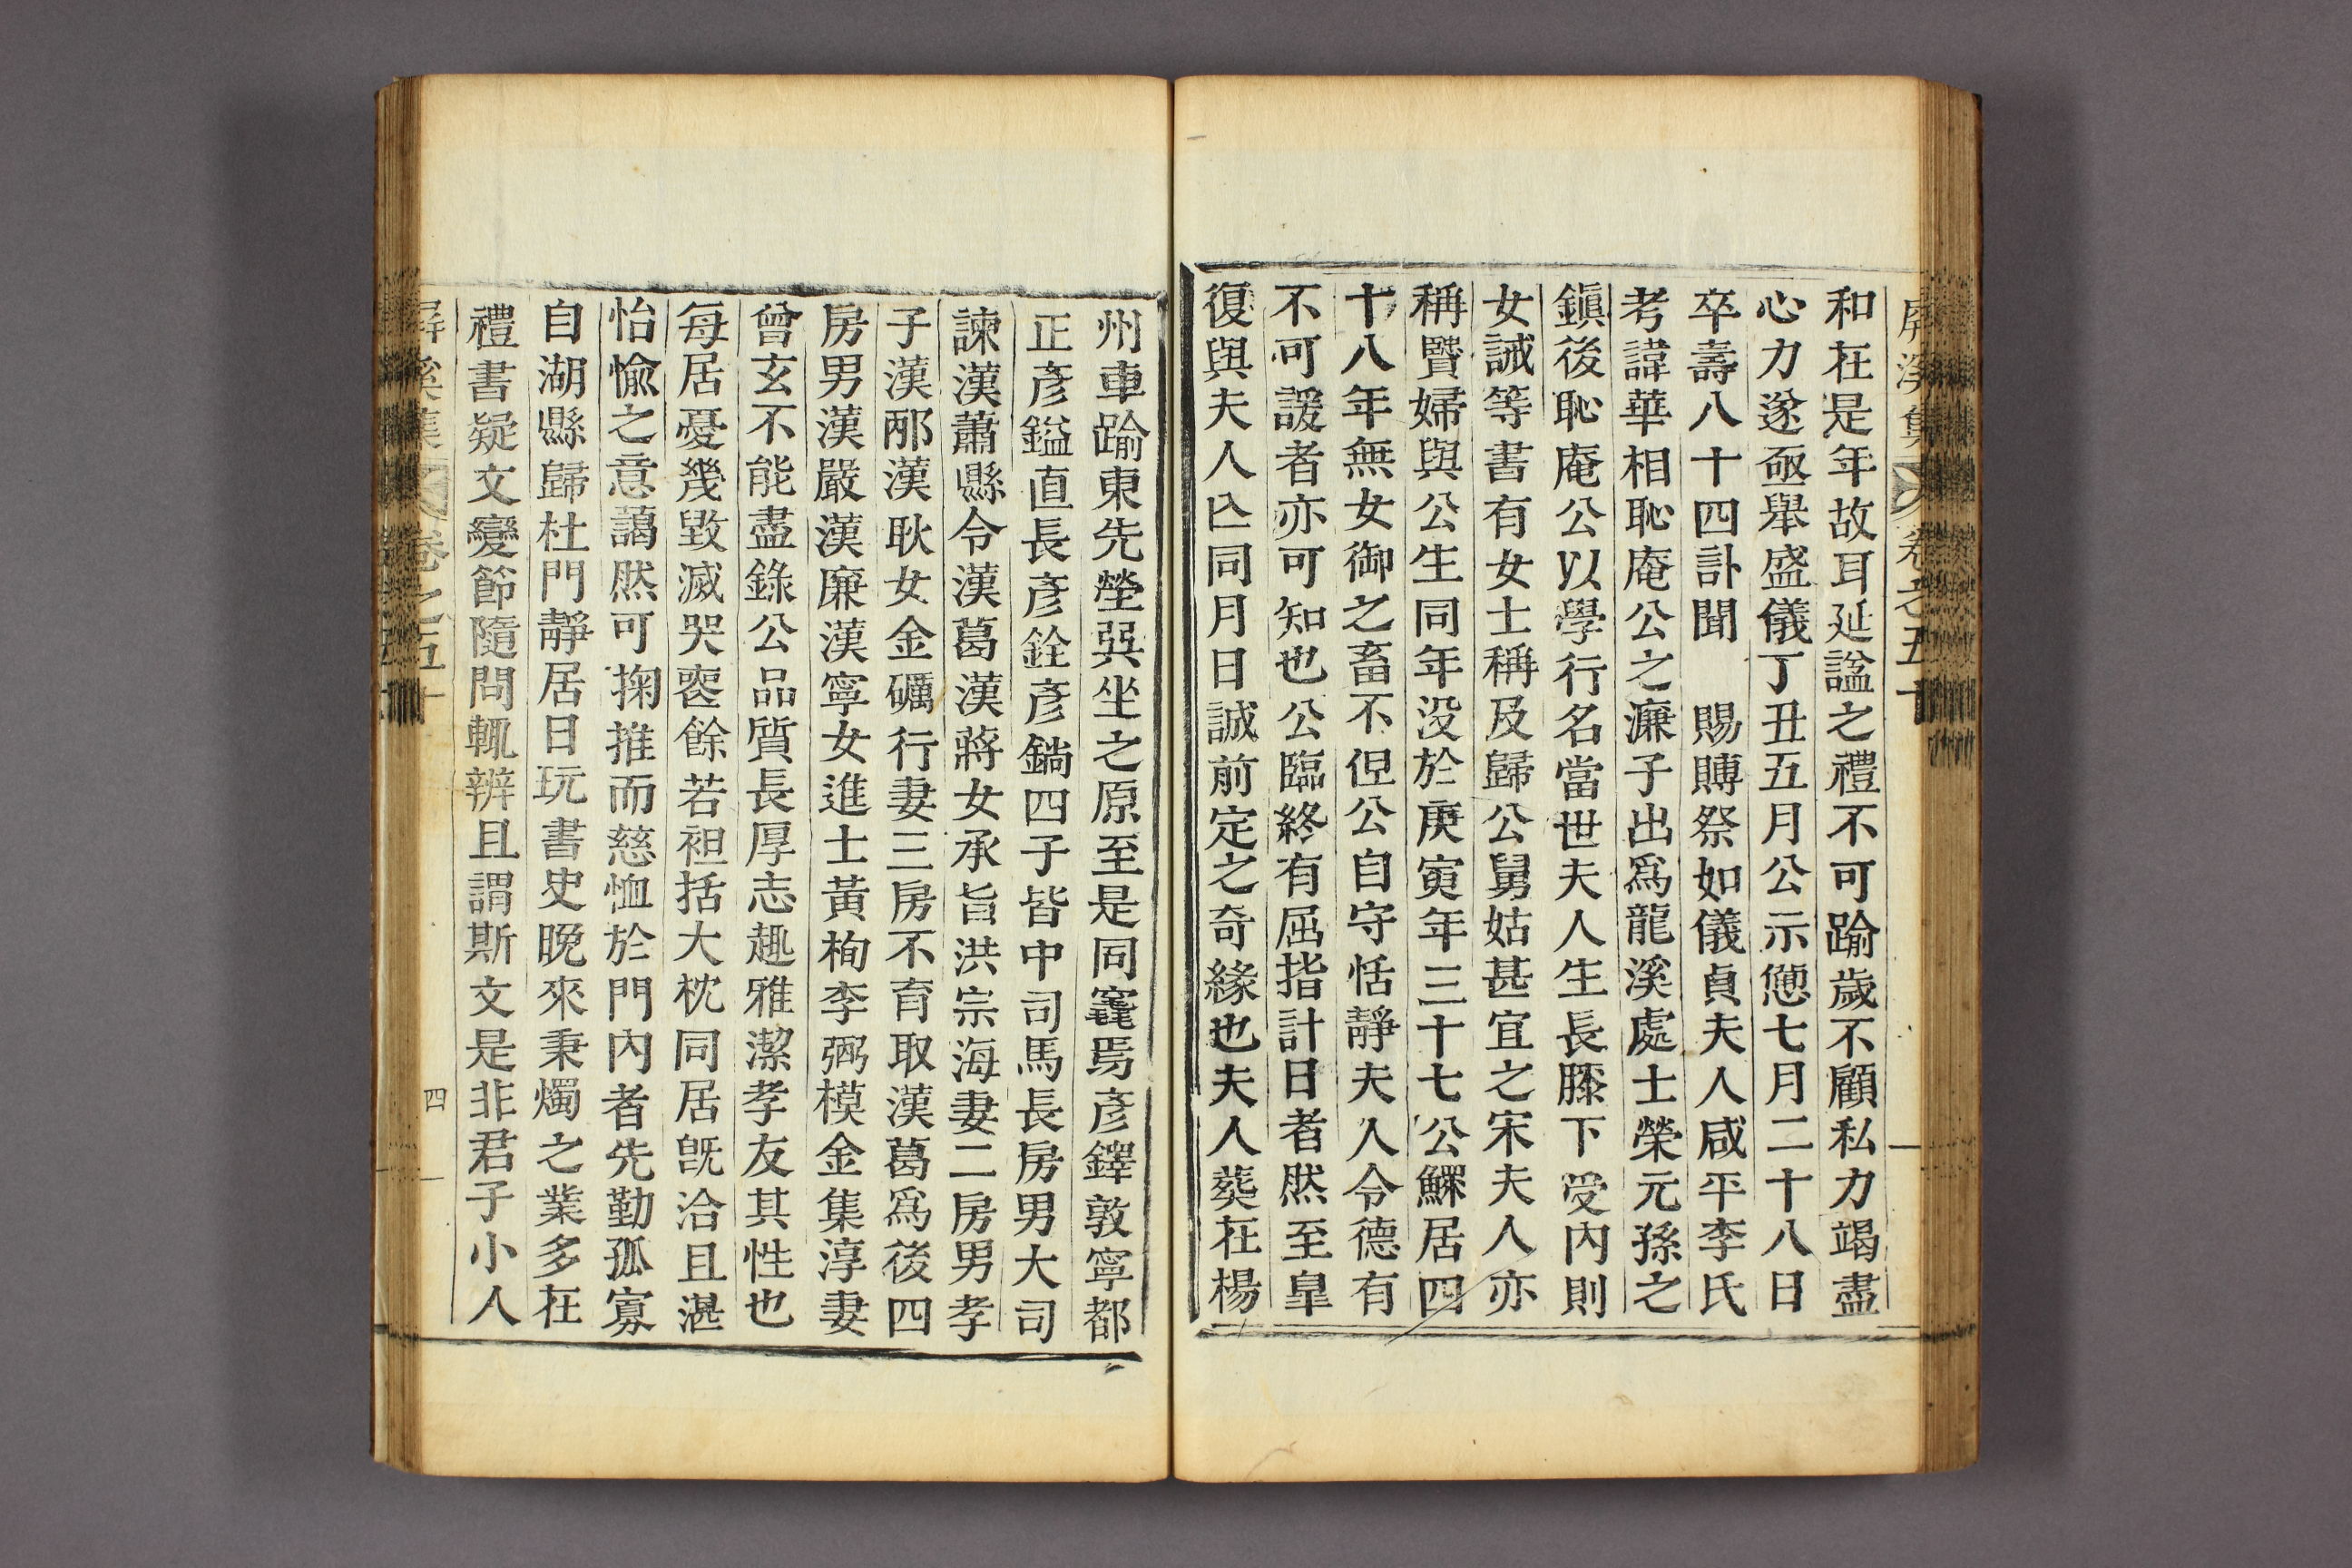 屏溪集 卷之五十
和在是年故耳延諡之禮不可踰歲不顧私力竭盡
心力遂亟舉盛儀丁丑五月公示憊七月二十八日
卒壽八十四訃聞 賜賻祭如儀貞夫人咸平李氏
考諱華相恥庵公之濂子出爲龍溪處士榮元孫之
鎭後恥庵公以學行名當世夫人生長膝下受內則
女誡等書有女士稱及歸公舅姑甚宜之宋夫人亦
稱賢婦與公生同年没於庚寅年三十七公鰥居四
十八年無女御之畜不但公自守恬靜夫人令德有
不可諼者亦可知也公臨終有屈指計日者然至皐
復與夫人亾同月日誠前定之奇緣也夫人葬在楊
州車踰東先塋巽坐之原至是同窆焉彦鐸敦寧都
正彦鎰直長彦銓彦鏛四子皆中司馬長房男大司
諫漢蕭縣令漢葛漢蔣女承旨洪宗海妻二房男孝
子漢邴漢耿女金礪行妻三房不育取漢葛爲後四
房男漢嚴漢廉漢寧女進士黃栒李弼模金集淳妻
曾玄不能盡錄公品質長厚志趣雅潔孝友其性也
每居憂幾毀滅哭窆餘若袒括大枕同居旣洽且湛
怡愉之意藹然可掬推而慈恤於門內者先勤孤寡
自湖縣歸杜門靜居日玩書史晩來秉燭之業多在
禮書疑文變節隨問輒辨且謂斯文是非君子小人
屏溪集 卷之五十 四